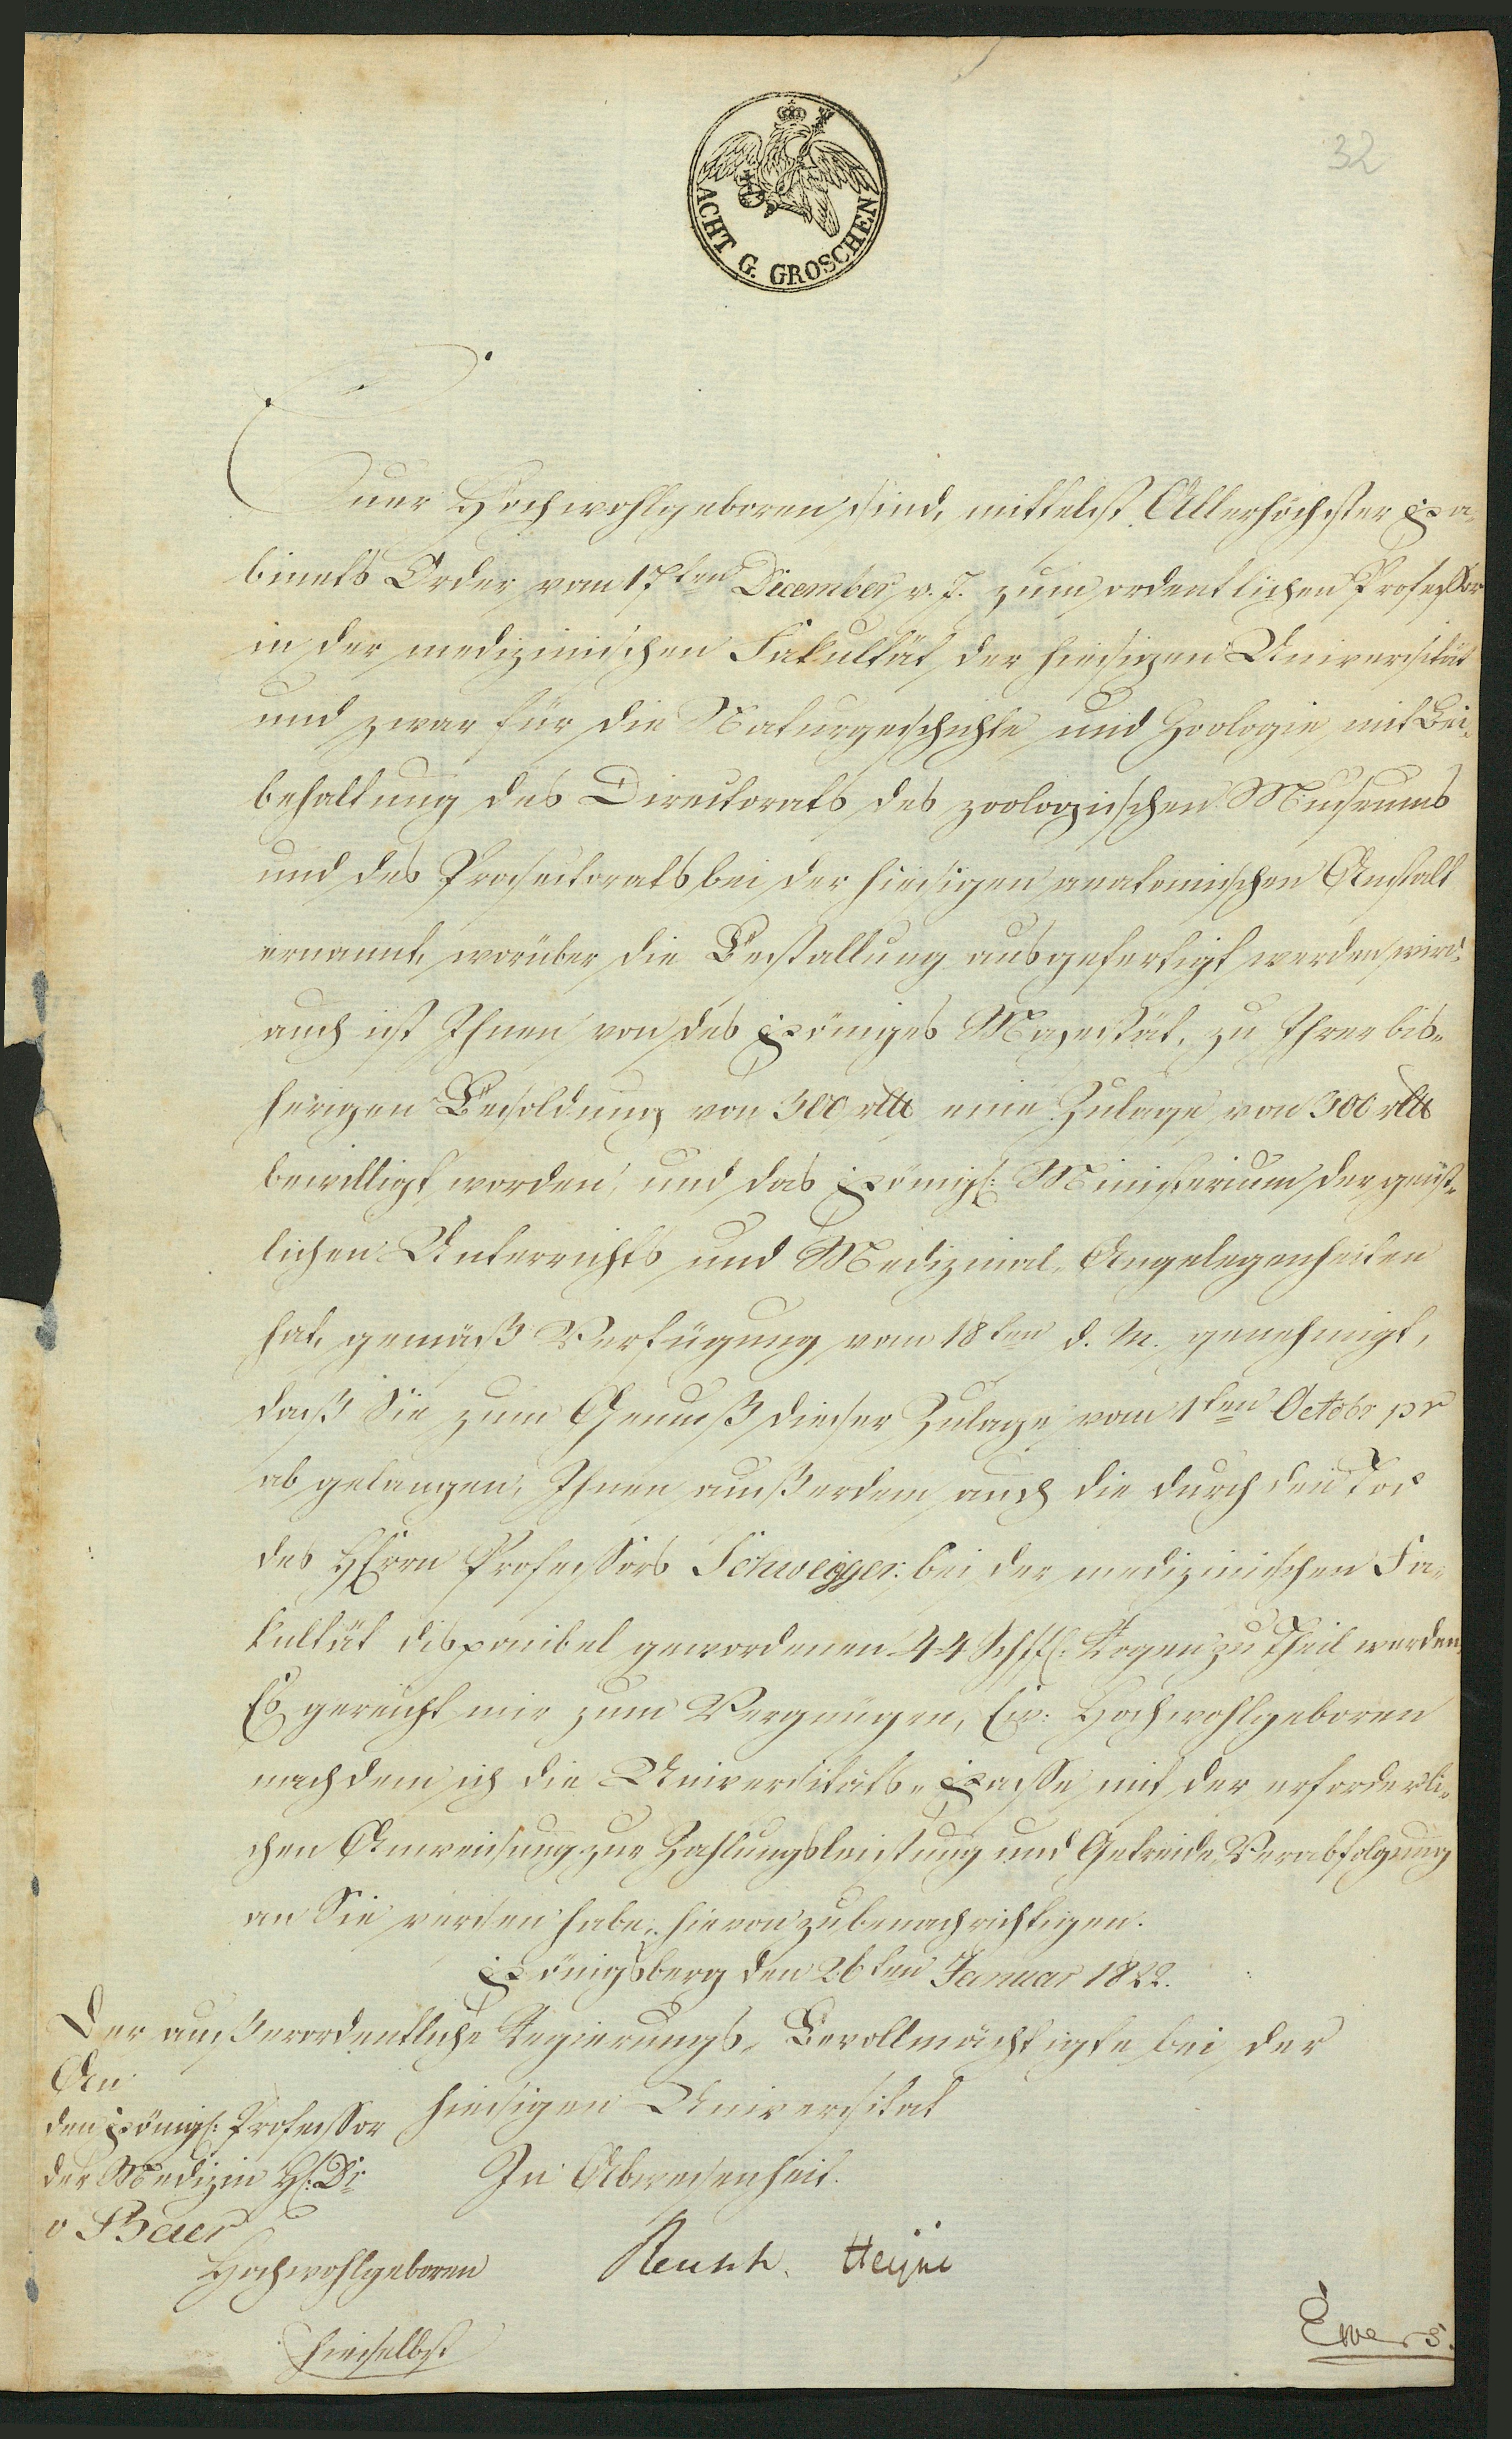 32
ACHT G. GROSCHEN
Euer Hochwohlgeboren sind, mittelst Allerhöchster Ka-
binets Order vom 17ten December v. J. zum ordentlichen Professor
in der medizinischen Fakultät der hiesigen Universität
und zwar für die Naturgeschichte und Zoologie mit Bei-
behaltung des Directorats des zoologischen Museums
und des Prosectorats bei der hiesigen anatomischen Anstalt
ernannt, worüber die Bestallung ausgefertigt werden wird,
auch ist Ihnen von des Königes Majestät, zu Ihrer bis-
herigen Besoldung von 500 rtlr eine Zulage von 300 rtlr
bewilligt worden, und das Königl: Ministerium der geist-
lichen Unterrichts und Medizinal-Angelegenheiten
hat, gemäß Verfügung vom 18ten d. M. genehmigt,
daß Sie zum Genuß dieser Zulage vom 1ten Octobr pr
ab gelangen, Ihnen außerdem auch die durch den Tod
des HErrn Professors Schweigger bei der medizinischen Fa-
kultät disponibel gewordenen 44 Schffl: Rogen zu Theil werden.
Es gereicht mir zum Vergnügen, Ew: Hochwohlgeboren
nachdem ich die Universitäts-Kasse mit der erforderli-
chen Anweisung zur Zahlungsleistung und Getreide Verabfolgung
an Sie versehen habe, hievon zu benachrichtigen.
Königsberg den 26ten Januar 1822.
Der außerordentliche Regierungs-Bevollmächtigte bei der
hiesigen Universitat
In Abwesenheit.
An
den Königl: Professor
der Medizin H: Dr
v Baer
Hochwohlgeboren
hieselbst
Reusch. Heyne
Ewers.